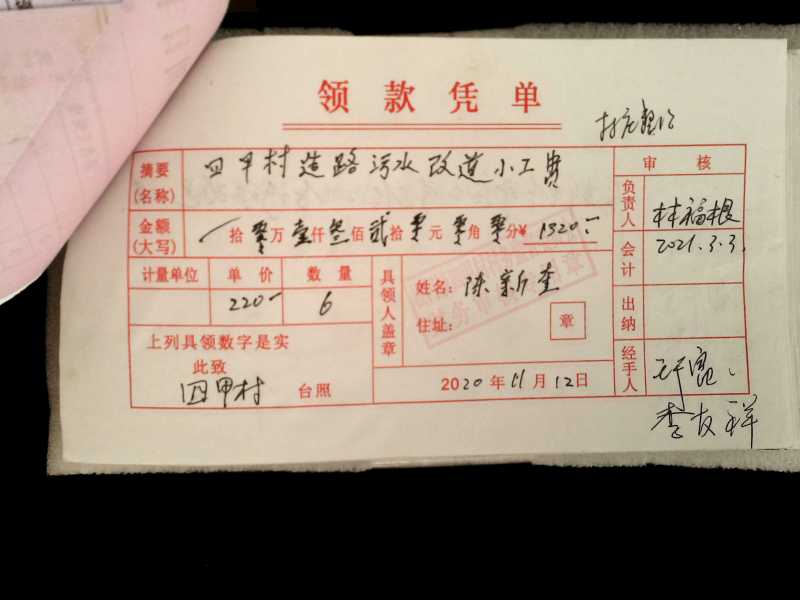 领款凭单
摘要(名称) 四甲村道路污水改道小工费
审核
金额(大写) 拾零万壹仟叁佰贰拾零元零角零分¥1320.-
负责人 林福根
2021.3.3.
会计
计量单位 单价 数量
220- 6
具领人盖章
姓名: 陈新奎
住址: 章
出纳
上列具领数字是实
此致
四甲村 台照
2020年11月12日
经手人
李友祥